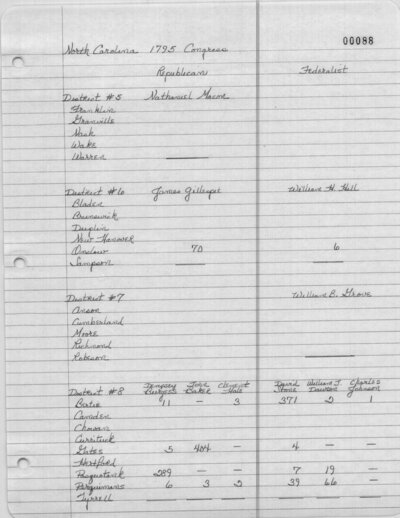 00088
North Carolina 1795 Congress
Republican Federalist
District #5 Nathaniel Macon
Franklin
Granville
Nash
Wake
Warren
District #6 James Gillespie William H. Hill
Bladen
Brunswick
Duplin
New Hanover
Onslow 70 6
Sampson
District #7 William B. Grove
Anson
Cumberland
Moore
Richmond
Robeson
District #8 Dempsey Burgess John Baker Clement Hall David Stone William J. Dawson Charles Johnson
Bertie 11 — 3 371 2 1
Camden
Chowan
Currituck
Gates 5 404 — 4 — —
Hertford
Pasquotank 289 — — 7 19 —
Perquimans 6 3 2 39 66 —
Tyrrell